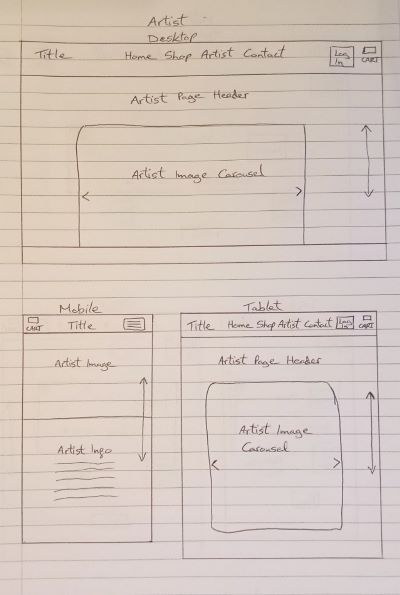 Artist
Desktop
Title Home Shop Artist Contact Log In CART
Artist Page Header
Artist Image Carousel
< >
Mobile
CART Title
Artist Image
Artist Info
Tablet
Title Home Shop Artist Contact Log In CART
Artist Page Header
Artist Image
Carousel
< >